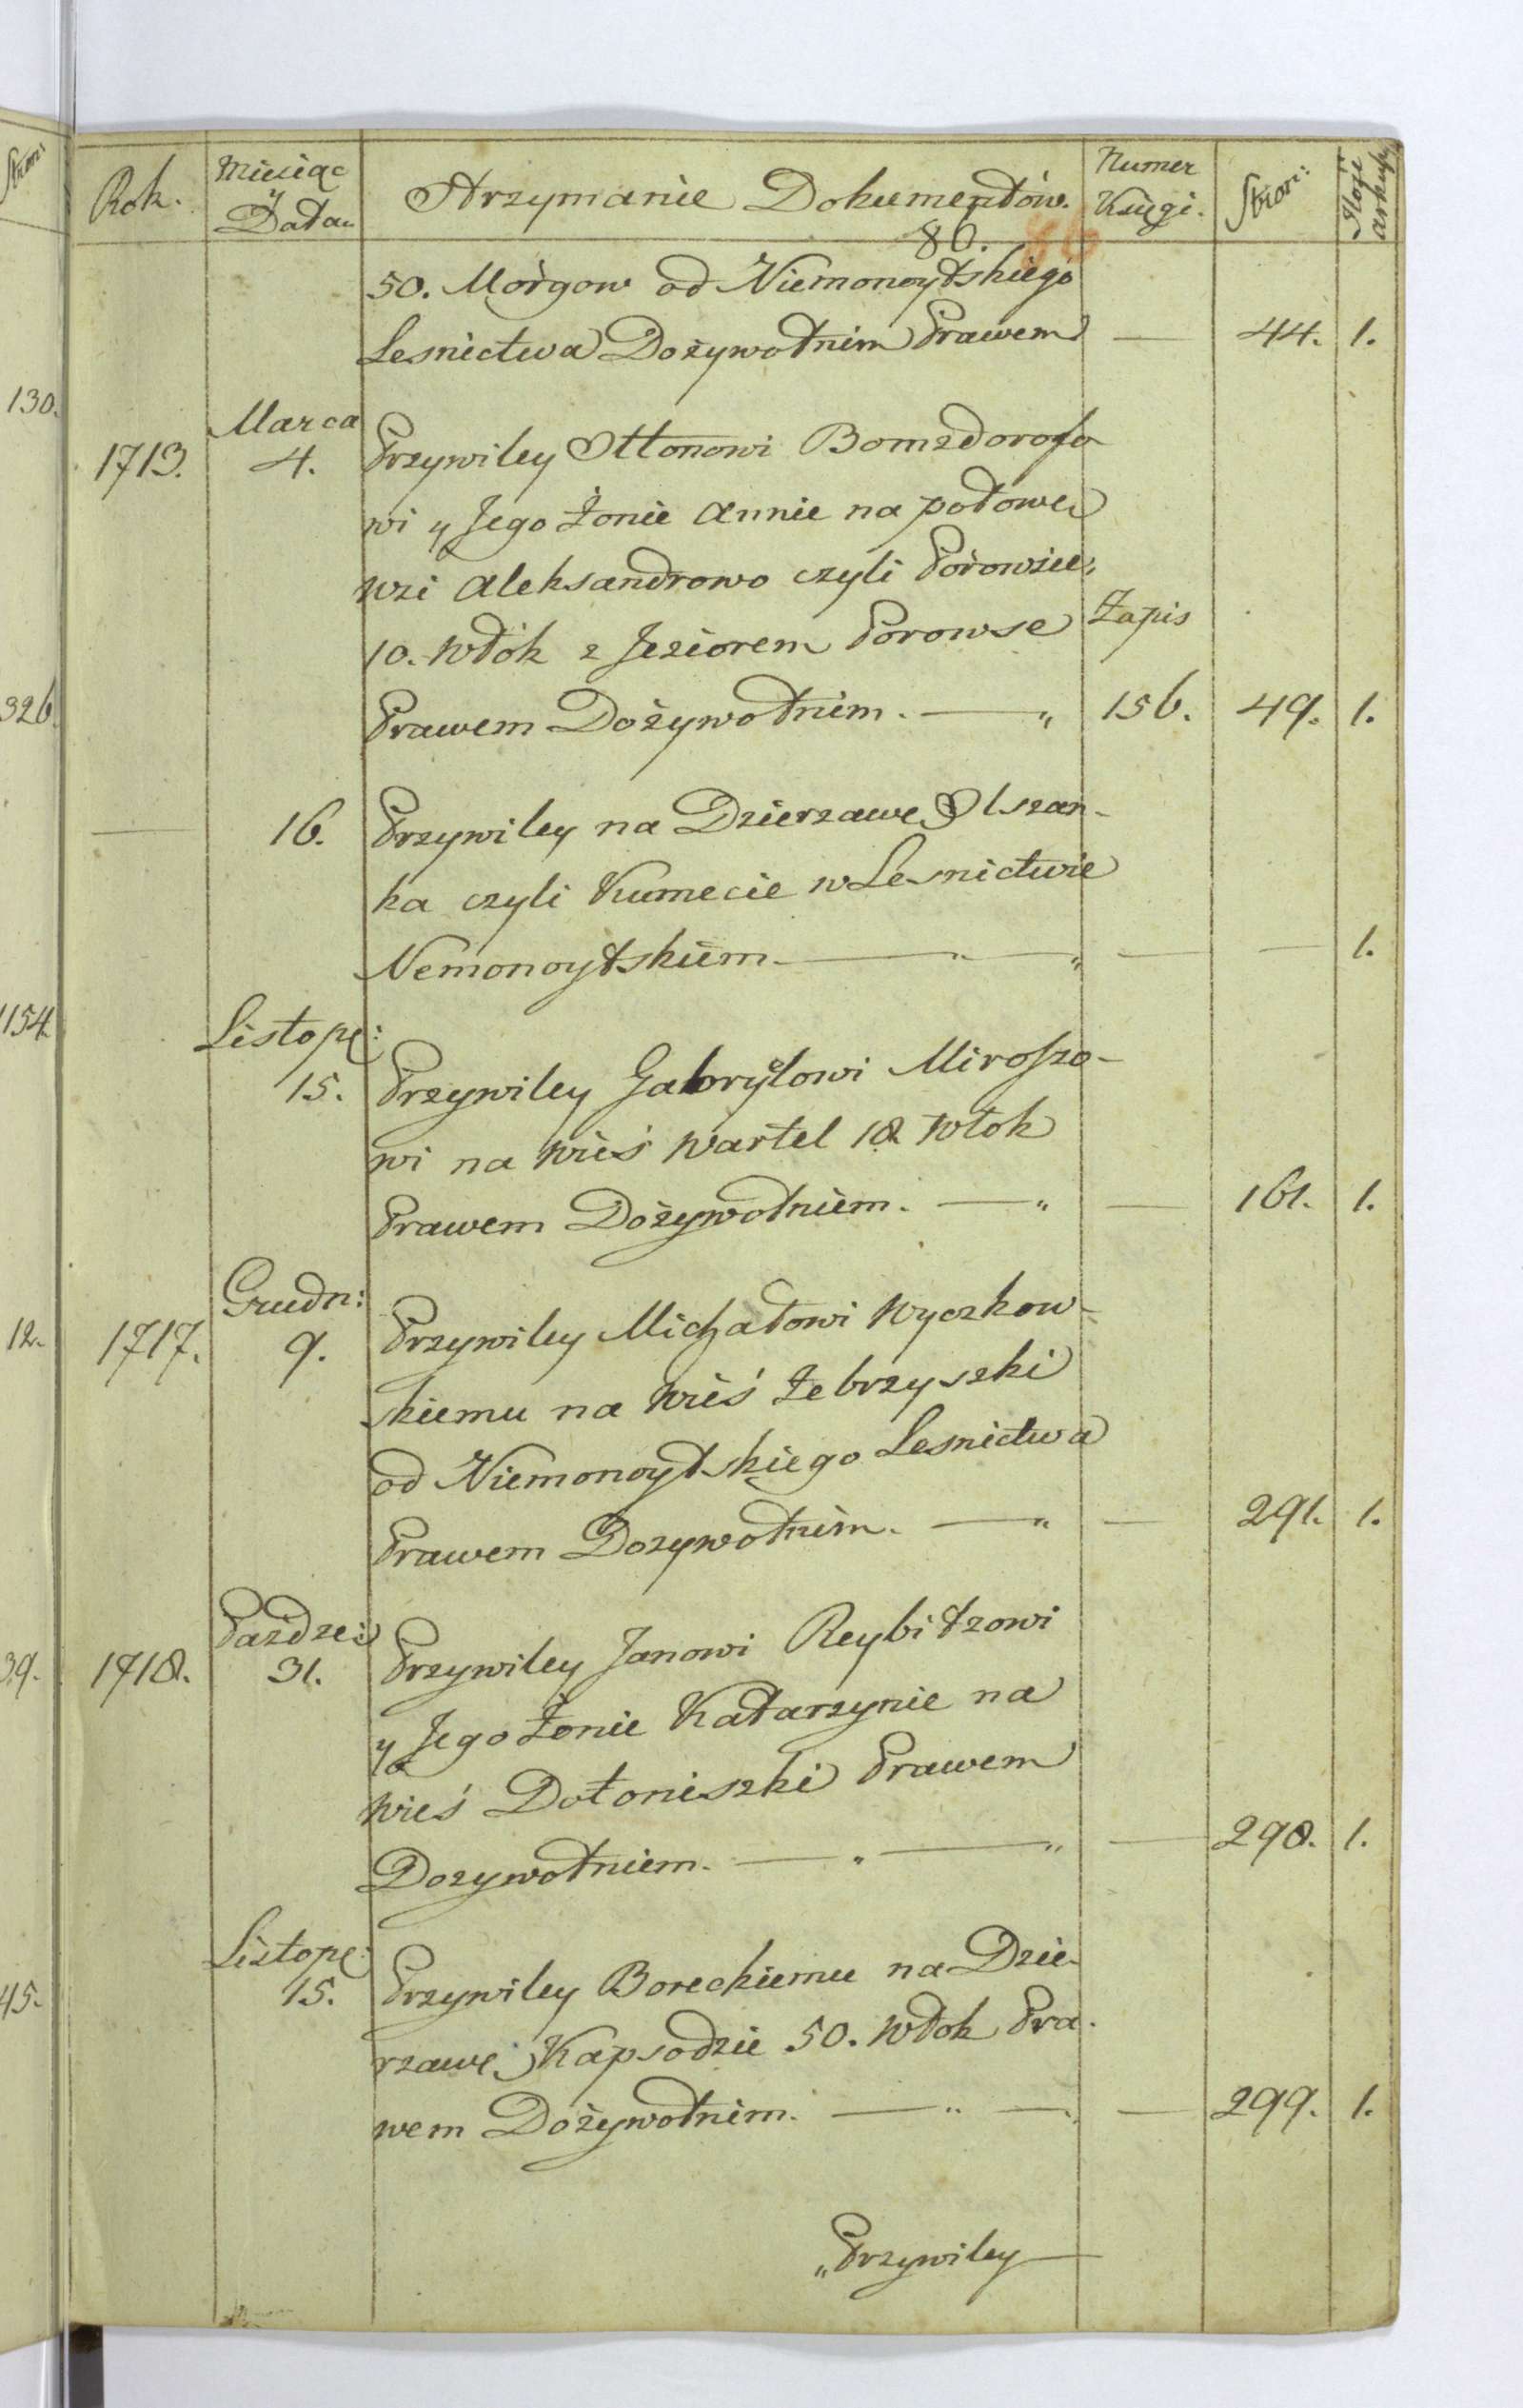 Stron:
Rok.
Miesiąc
y
Data
Otrzymanie Dokumentów.
Numer
Księgi.
Stron:
Ilość
arkuszy
86.
86
50. Mórgow od Niemonoytskiego
Lesnictwa Dożywotnim Prawem — 44. 1.
130.
1713. Marca
4. Przywiley Ottonowi Bomsdorofo
wi y Jego Żonie Annie na połowe
wsi Aleksandrowo czyli Porowsie,
10. Włók z Jeziorem Porowse Zapis
326.
Prawem Dożywotnim. — „ 156. 49. 1.
— 16. Przywiley na Dzierzawe Olszan-
ka czyli Kumecie w Lesnictwie
Nemonoytskiem — „ — „ — — 1.
1154.
Listopa:
15. Przywiley Gabryelowi Miroszo-
wi na Wieś Wartel 18 Włok
Prawem Dożywotniem. — „ — 161. 1.
12.
1717. Grudn:
9. Przywiley Michałowi Wyczkow-
skiemu na Wieś Żebrzyszki
od Niemonoytskiego Lesnictwa
Prawem Dozywotnim. — „ — 291. 1.
39.
1718. Pażdze:
31. Przywiley Janowi Reybitzowi
y Jego Żonie Katarzynie na
Wieś Dołoniszki Prawem
Dozywotniem. — „ — „ — 298. 1.
45.
Listopa:
15. Przywiley Boreckiemu na Dzie-
rzawę Kapsodzie 50. Włok Pra-
wem Dożywotnim. — „ — — 299. 1.
„Przywiley —